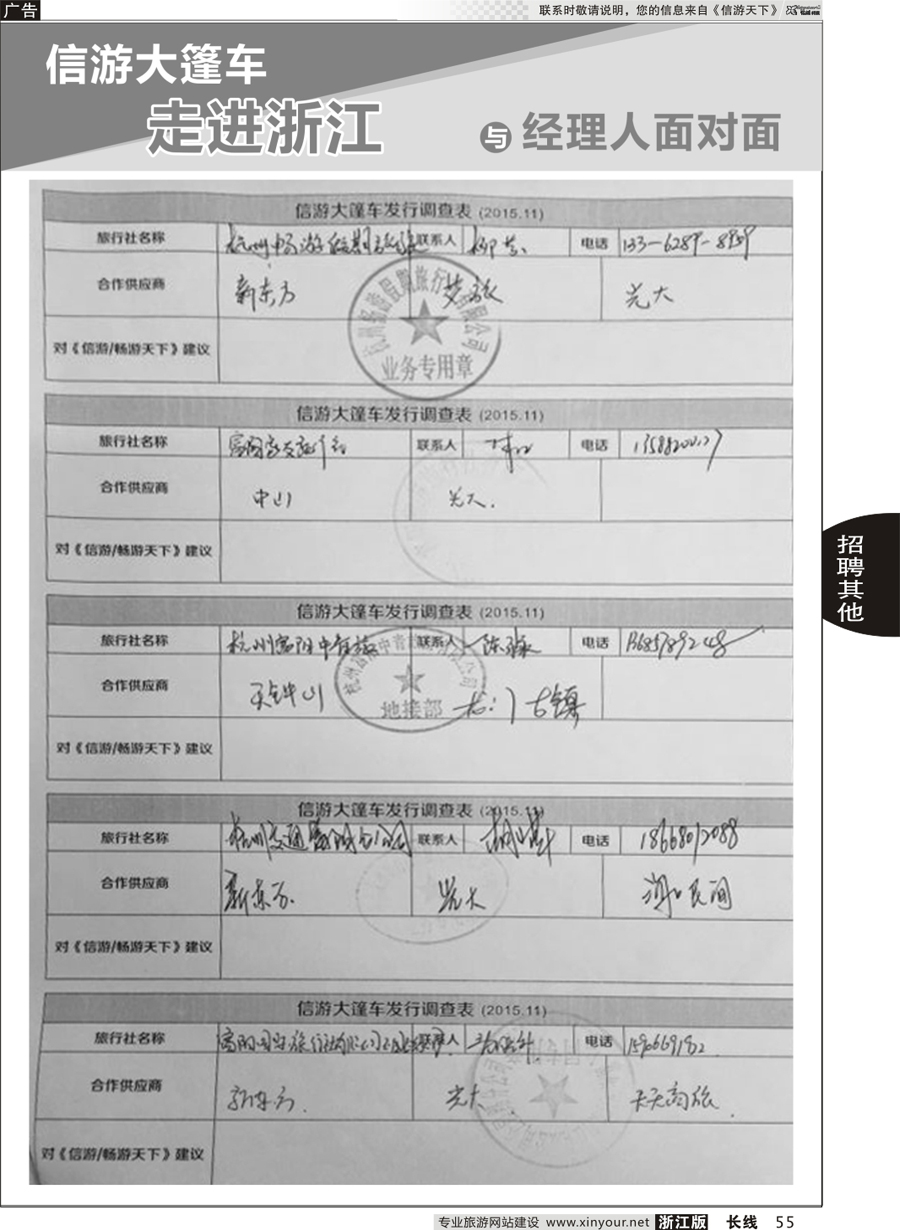 广告
联系时敬请说明，您的信息来自《信游天下》
信游大篷车
走进浙江
与 经理人面对面
信游大篷车发行调查表 (2015.11)
旅行社名称 联系人 电话 133-6289-8959
合作供应商 新东方 梦之旅 光大
业务专用章
对《信游/畅游天下》建议
信游大篷车发行调查表 (2015.11)
旅行社名称 联系人 电话
合作供应商 中山 光大.
对《信游/畅游天下》建议
信游大篷车发行调查表 (2015.11)
旅行社名称 杭州富阳中青旅 联系人 电话 13685789248
合作供应商 古镇
地接部
对《信游/畅游天下》建议
信游大篷车发行调查表 (2015.11)
旅行社名称 联系人 电话 18668012088
合作供应商 新东方. 光大
对《信游/畅游天下》建议
信游大篷车发行调查表 (2015.11)
旅行社名称 联系人 电话
合作供应商 新东方. 光大 天天商旅.
对《信游/畅游天下》建议
招聘其他
专业旅游网站建设 www.xinyour.net 浙江版 长线 55